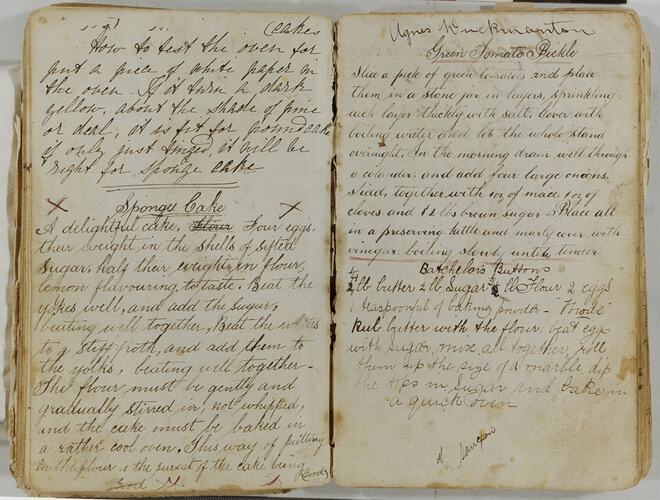 Cakes
How to test the oven for
put a piece of white paper in
the oven. If it turn a dark
yellow, about the shade of pine
or deal, it is fit for pound cake
if only just tinged, it will be
right for sponge cake
Sponge Cake
A delightful cake, Flour Four eggs
their weight in the shells of sifted
Sugar, half their weight in flour,
lemon flavouring to taste. Beat the
yokes well, and add the sugar,
beating well together, Beat the whites
to a stiff froth, and add them to
the yolks, beating well together -
The flour must be gently and
gradually stirred in, not whipped,
and the cake must be baked in
a rather cool oven. This way of putting
in the flour is the surest of the cake being
Good
Good
Agnes Duckmanton
Green Tomato Pickle
Slice a peck of green tomatoes and place
them in a stone jar in layers, sprinkling
each layer thickly with salt. Cover with
boiling water and let the whole stand
overnight. In the morning drain well through
a colander, and add four large onions,
sliced, together with 1 oz of mace, 1 oz of
cloves and 1 2 lbs brown sugar Place all
in a preserving kettle and nearly cover with
vinegar. boiling slowly until tender
Batchelors Buttons
lb butter lb Sugar lb Flour 2 eggs
1 teaspoonful of baking powder -
Rub butter with the flour, beat eggs
with sugar, mix all together, roll
them up the size of a marble dip
the tops in sugar and bake in
a quick oven